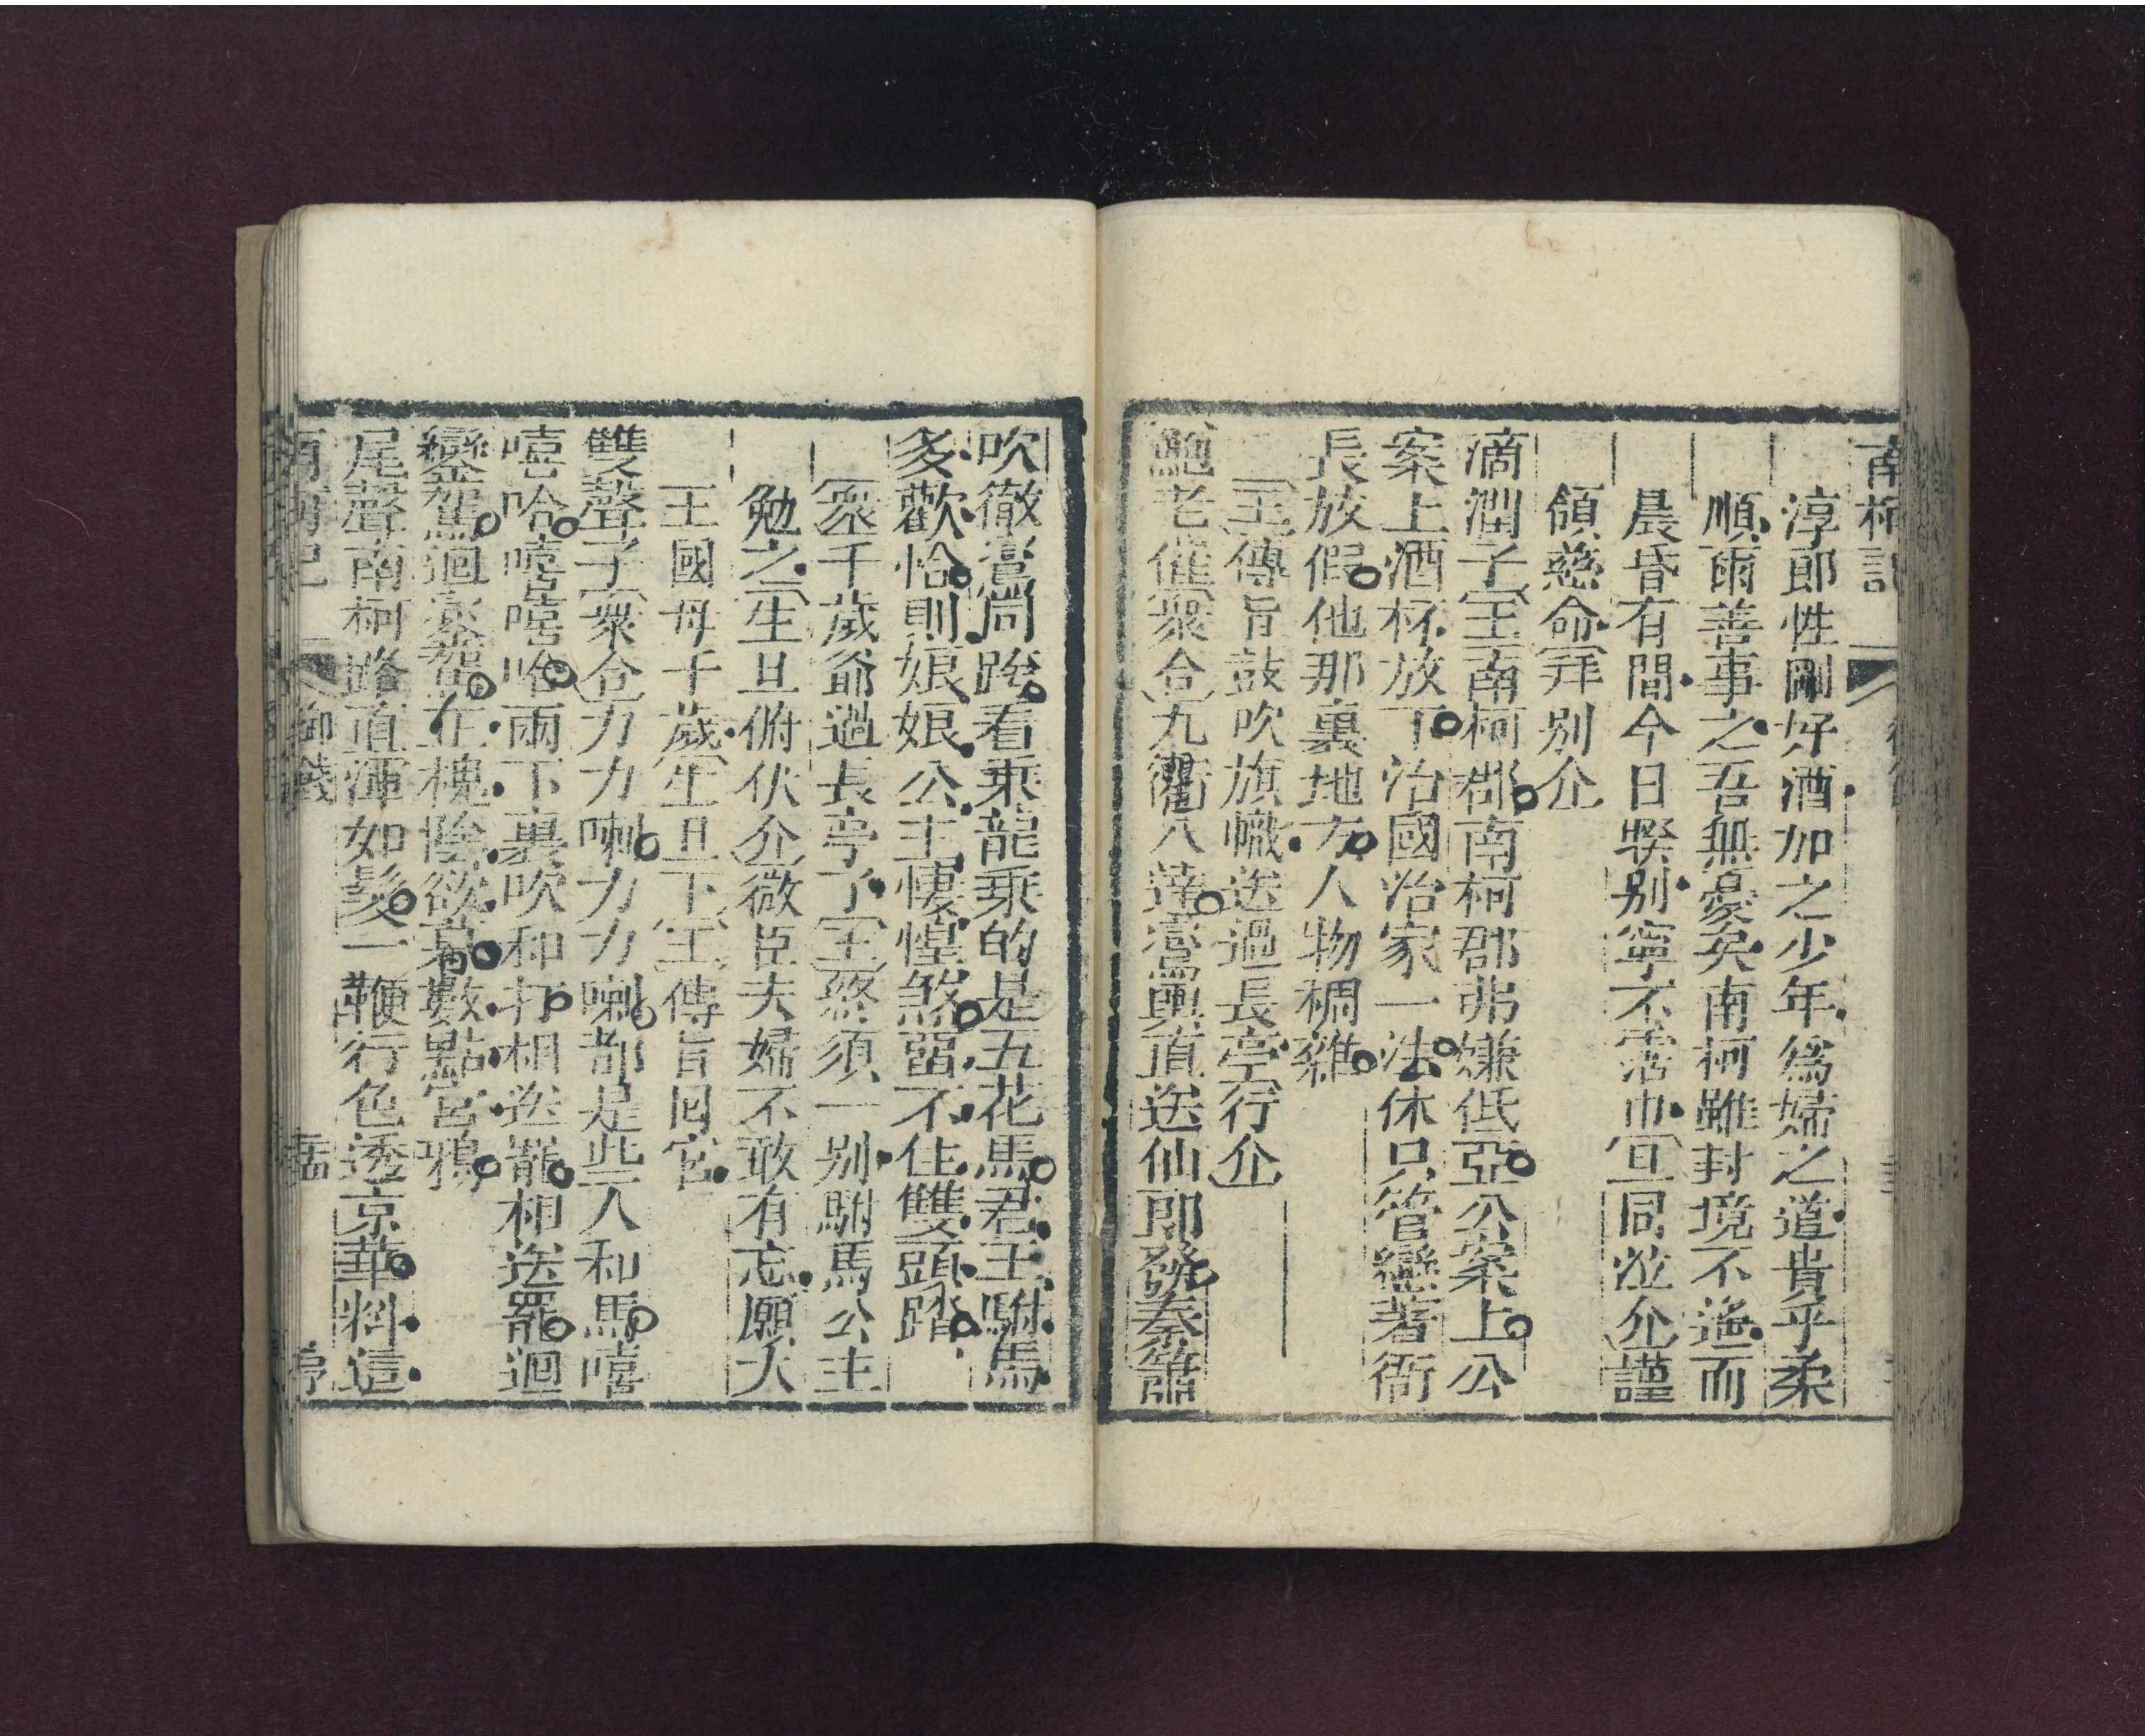 南柯記
淳郎性剛好酒加之少年為婦之道貴乎柔
順爾善事之吾無憂矣南柯雖封境不遙而
晨昏有間今日暌别寧不霑巾旦同泣介謹
領慈命拜別介
滴溜子王南柯郡南柯郡弗嫌低亞公案上公
案上酒杯放下治國治家一法休只管戀著衙
長放假他那裏地方人物稠雜
王傳旨鼓吹旗幟送過長亭行介
鮑老催衆合九衢八達靈輿直送仙郎發秦簫
吹徹鸞同跨看乘龍乘的是五花馬君王駙馬
多歡恰則娘娘公主悽惶煞留不住雙頭踏
衆千歲爺過長亭了王終須一別駙馬公主
勉之生旦俯伏介微臣夫婦不敢有忘願大
王國母千歲生旦下王傳旨回宮
雙聲子衆合力力喇力力喇都是些人和馬嘻
嘻哈嘻嘻哈兩下裏吹和打相送罷相送罷迴
鑾駕迴鑾駕在槐陰欲暮數點宮鴉
尾聲南柯路直渾如髮一鞭行色透京華料這
南柯記 御餞